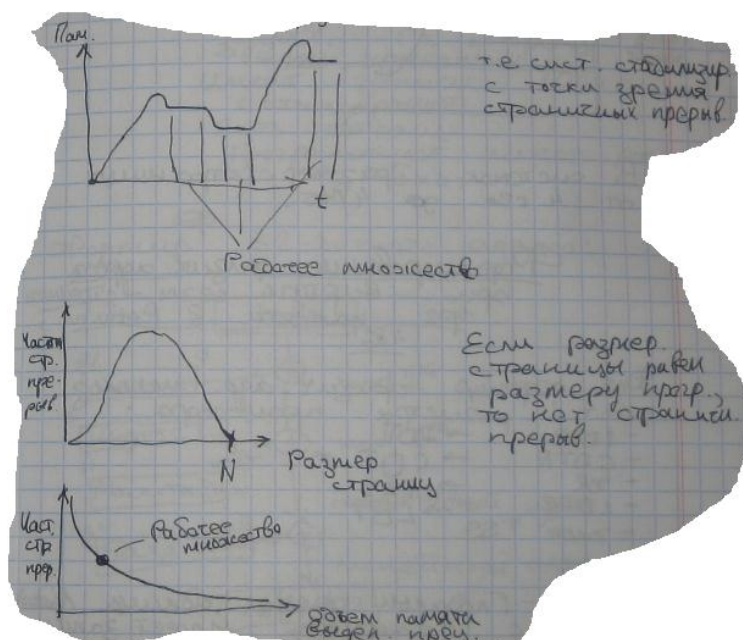 Пам.
т.е сист. стабилизир.
с точки зрения
страничных прерыв.
t
Рабочее множество
Частота
стр.
пре-
рыв.
Если размер
страницы равен
размеру прогр.,
то нет страничн.
прерыв.
N
Размер
страниц
Част.
стр
прер.
Рабочее
множество
объем памяти
выделен. проц.